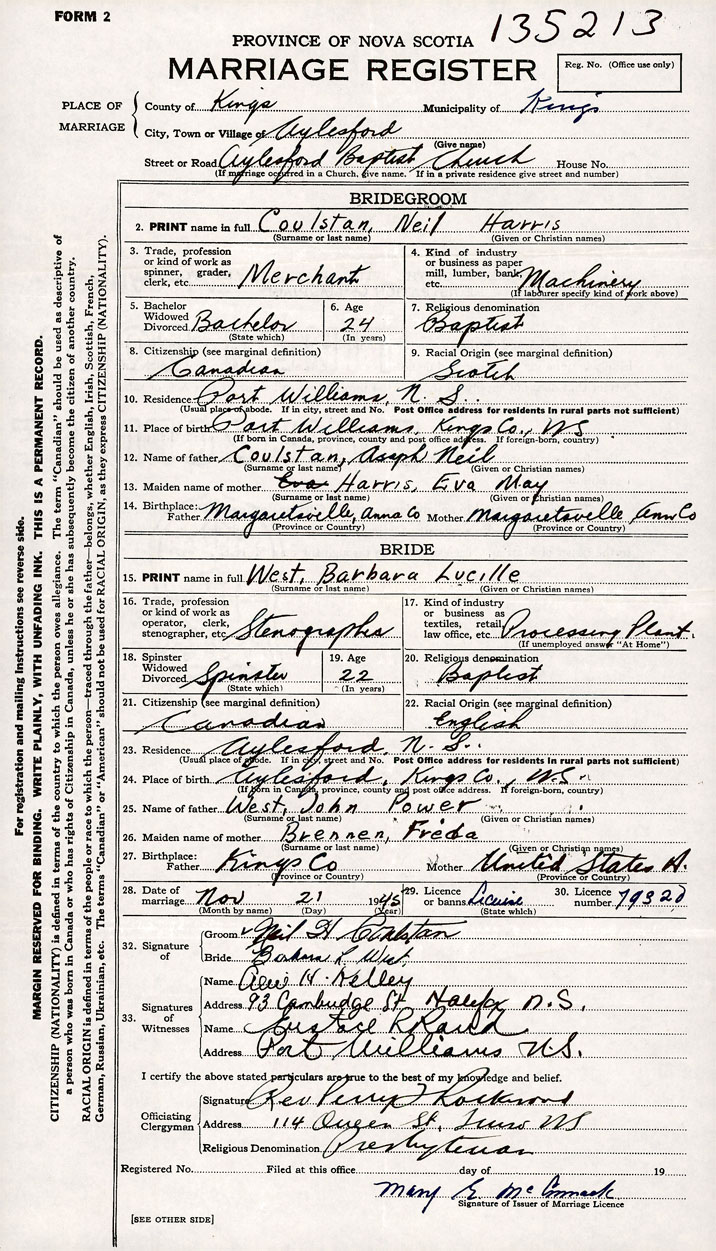 FORM 2
135213
PROVINCE OF NOVA SCOTIA
MARRIAGE REGISTER
Reg. No. (Office use only)
PLACE OF MARRIAGE
County of Kings Municipality of Kings
City, Town or Village of Aylesford
(Give name)
Street or Road Aylesford Baptist Church House No.
(If marriage occurred in a Church, give name. If in a private residence give street and number)
BRIDEGROOM
2. PRINT name in full Coulstan, Neil Harris
(Surname or last name) (Given or Christian names)
3. Trade, profession or kind of work as spinner, grader, clerk, etc. Merchant
4. Kind of industry or business as paper mill, lumber, bank, etc. Machinery
(If labourer specify kind of work above)
5. Bachelor Widowed Divorced Bachelor
(State which)
6. Age 24
(In years)
7. Religious denomination Baptist
8. Citizenship (see marginal definition) Canadian
9. Racial Origin (see marginal definition) Scotch
10. Residence Port Williams, N. S.
(Usual place of abode. If in city, street and No. Post Office address for residents in rural parts not sufficient)
11. Place of birth Port Williams, Kings Co., NS
(If born in Canada, province, county and post office address. If foreign-born, country)
12. Name of father Coulstan, Neil
(Surname or last name) (Given or Christian names)
13. Maiden name of mother Eva Harris, Eva May
(Surname or last name) (Given or Christian names)
14. Birthplace: Father Margaretsville, Anna Co Mother Margaretsville Ann Co
(Province or Country) (Province or Country)
BRIDE
15. PRINT name in full West, Barbara Lucille
(Surname or last name) (Given or Christian names)
16. Trade, profession or kind of work as operator, clerk, stenographer, etc. Stenographer
17. Kind of industry or business as textiles, retail, law office, etc. Processing Plant.
(If unemployed answer "At Home")
18. Spinster Widowed Divorced Spinster
(State which)
19. Age 22
(In years)
20. Religious denomination Baptist
21. Citizenship (see marginal definition) Canadian
22. Racial Origin (see marginal definition) English
23. Residence Aylesford, N. S.
(Usual place of abode. If in city, street and No. Post Office address for residents in rural parts not sufficient)
24. Place of birth Aylesford, Kings Co., N.S.
(If born in Canada, province, county and post office address. If foreign-born, country)
25. Name of father West, John Power
(Surname or last name) (Given or Christian names)
26. Maiden name of mother Brennen, Freda
(Surname or last name) (Given or Christian names)
27. Birthplace: Father Kings Co Mother United States A.
(Province or Country) (Province or Country)
28. Date of marriage Nov 21 1945
(Month by name) (Day) (Year)
29. Licence or banns License
(State which)
30. Licence number 79320
32. Signature of
Groom Neil H Coulstan
Bride Barbara L West
33. Signatures of Witnesses
Name H. Kelley
Address 93 Cambridge St Halifax N.S.
Name Eustace
Address Port Williams N.S.
I certify the above stated particulars are true to the best of my knowledge and belief.
Officiating Clergyman
Signature Rev Perry Rockwood
Address 114 Queen St. Truro NS
Religious Denomination Presbyterian
Registered No. Filed at this office day of 19
Mary E. McCormack
Signature of Issuer of Marriage Licence
[SEE OTHER SIDE]
For registration and mailing instructions see reverse side.
MARGIN RESERVED FOR BINDING. WRITE PLAINLY, WITH UNFADING INK. THIS IS A PERMANENT RECORD.
CITIZENSHIP (NATIONALITY) is defined in terms of the country to which the person owes allegiance. The term "Canadian" should be used as descriptive of
a person who was born in Canada or who has rights of Citizenship in Canada, unless he or she has subsequently become the citizen of another country.
RACIAL ORIGIN is defined in terms of the people or race to which the person—traced through the father—belongs, whether English, Irish, Scottish, French,
German, Russian, Ukrainian, etc. The terms "Canadian" or "American" should not be used for RACIAL ORIGIN, as they express CITIZENSHIP (NATIONALITY).